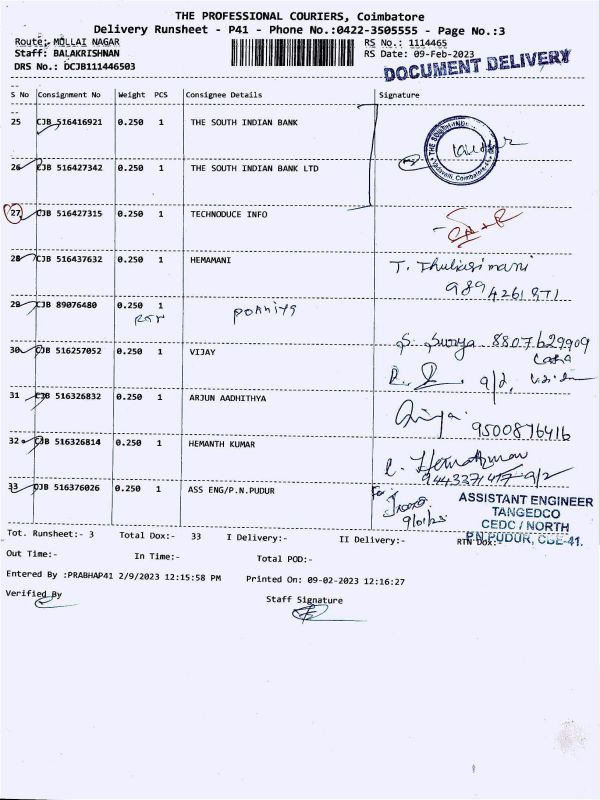 THE PROFESSIONAL COURIERS, Coimbatore
Delivery Runsheet - P41 - Phone No.:0422-3505555 - Page No.:3
Route:- MOLLAI NAGAR RS No.: 1114465
Staff: BALAKRISHNAN RS Date: 09-Feb-2023
DRS No.: DCJB111446503
DOCUMENT DELIVERY
S No Consignment No Weight PCS Consignee Details Signature
25 CJB 516416921 0.250 1 THE SOUTH INDIAN BANK
26 CJB 516427342 0.250 1 THE SOUTH INDIAN BANK LTD
27 CJB 516427315 0.250 1 TECHNODUCE INFO
28 CJB 516437632 0.250 1 HEMAMANI
T. Thulasimani
29 CJB 89076480 0.250 1
30 CJB 516257052 0.250 1 VIJAY
S. Surya 8807629909
31 CJB 516326832 0.250 1 ARJUN AADHITHYA
9500876416
32 CJB 516326814 0.250 1 HEMANTH KUMAR
33 CJB 516376026 0.250 1 ASS ENG/P.N.PUDUR
For
ASSISTANT ENGINEER
TANGEDCO
CEDC / NORTH
P.N.PUDUR, CBE-41.
Tot. Runsheet:- 3 Total Dox:- 33 I Delivery:- II Delivery:- RTN Dox:-
Out Time:- In Time:- Total POD:-
Entered By :PRABHAP41 2/9/2023 12:15:58 PM Printed On: 09-02-2023 12:16:27
Verified By Staff Signature